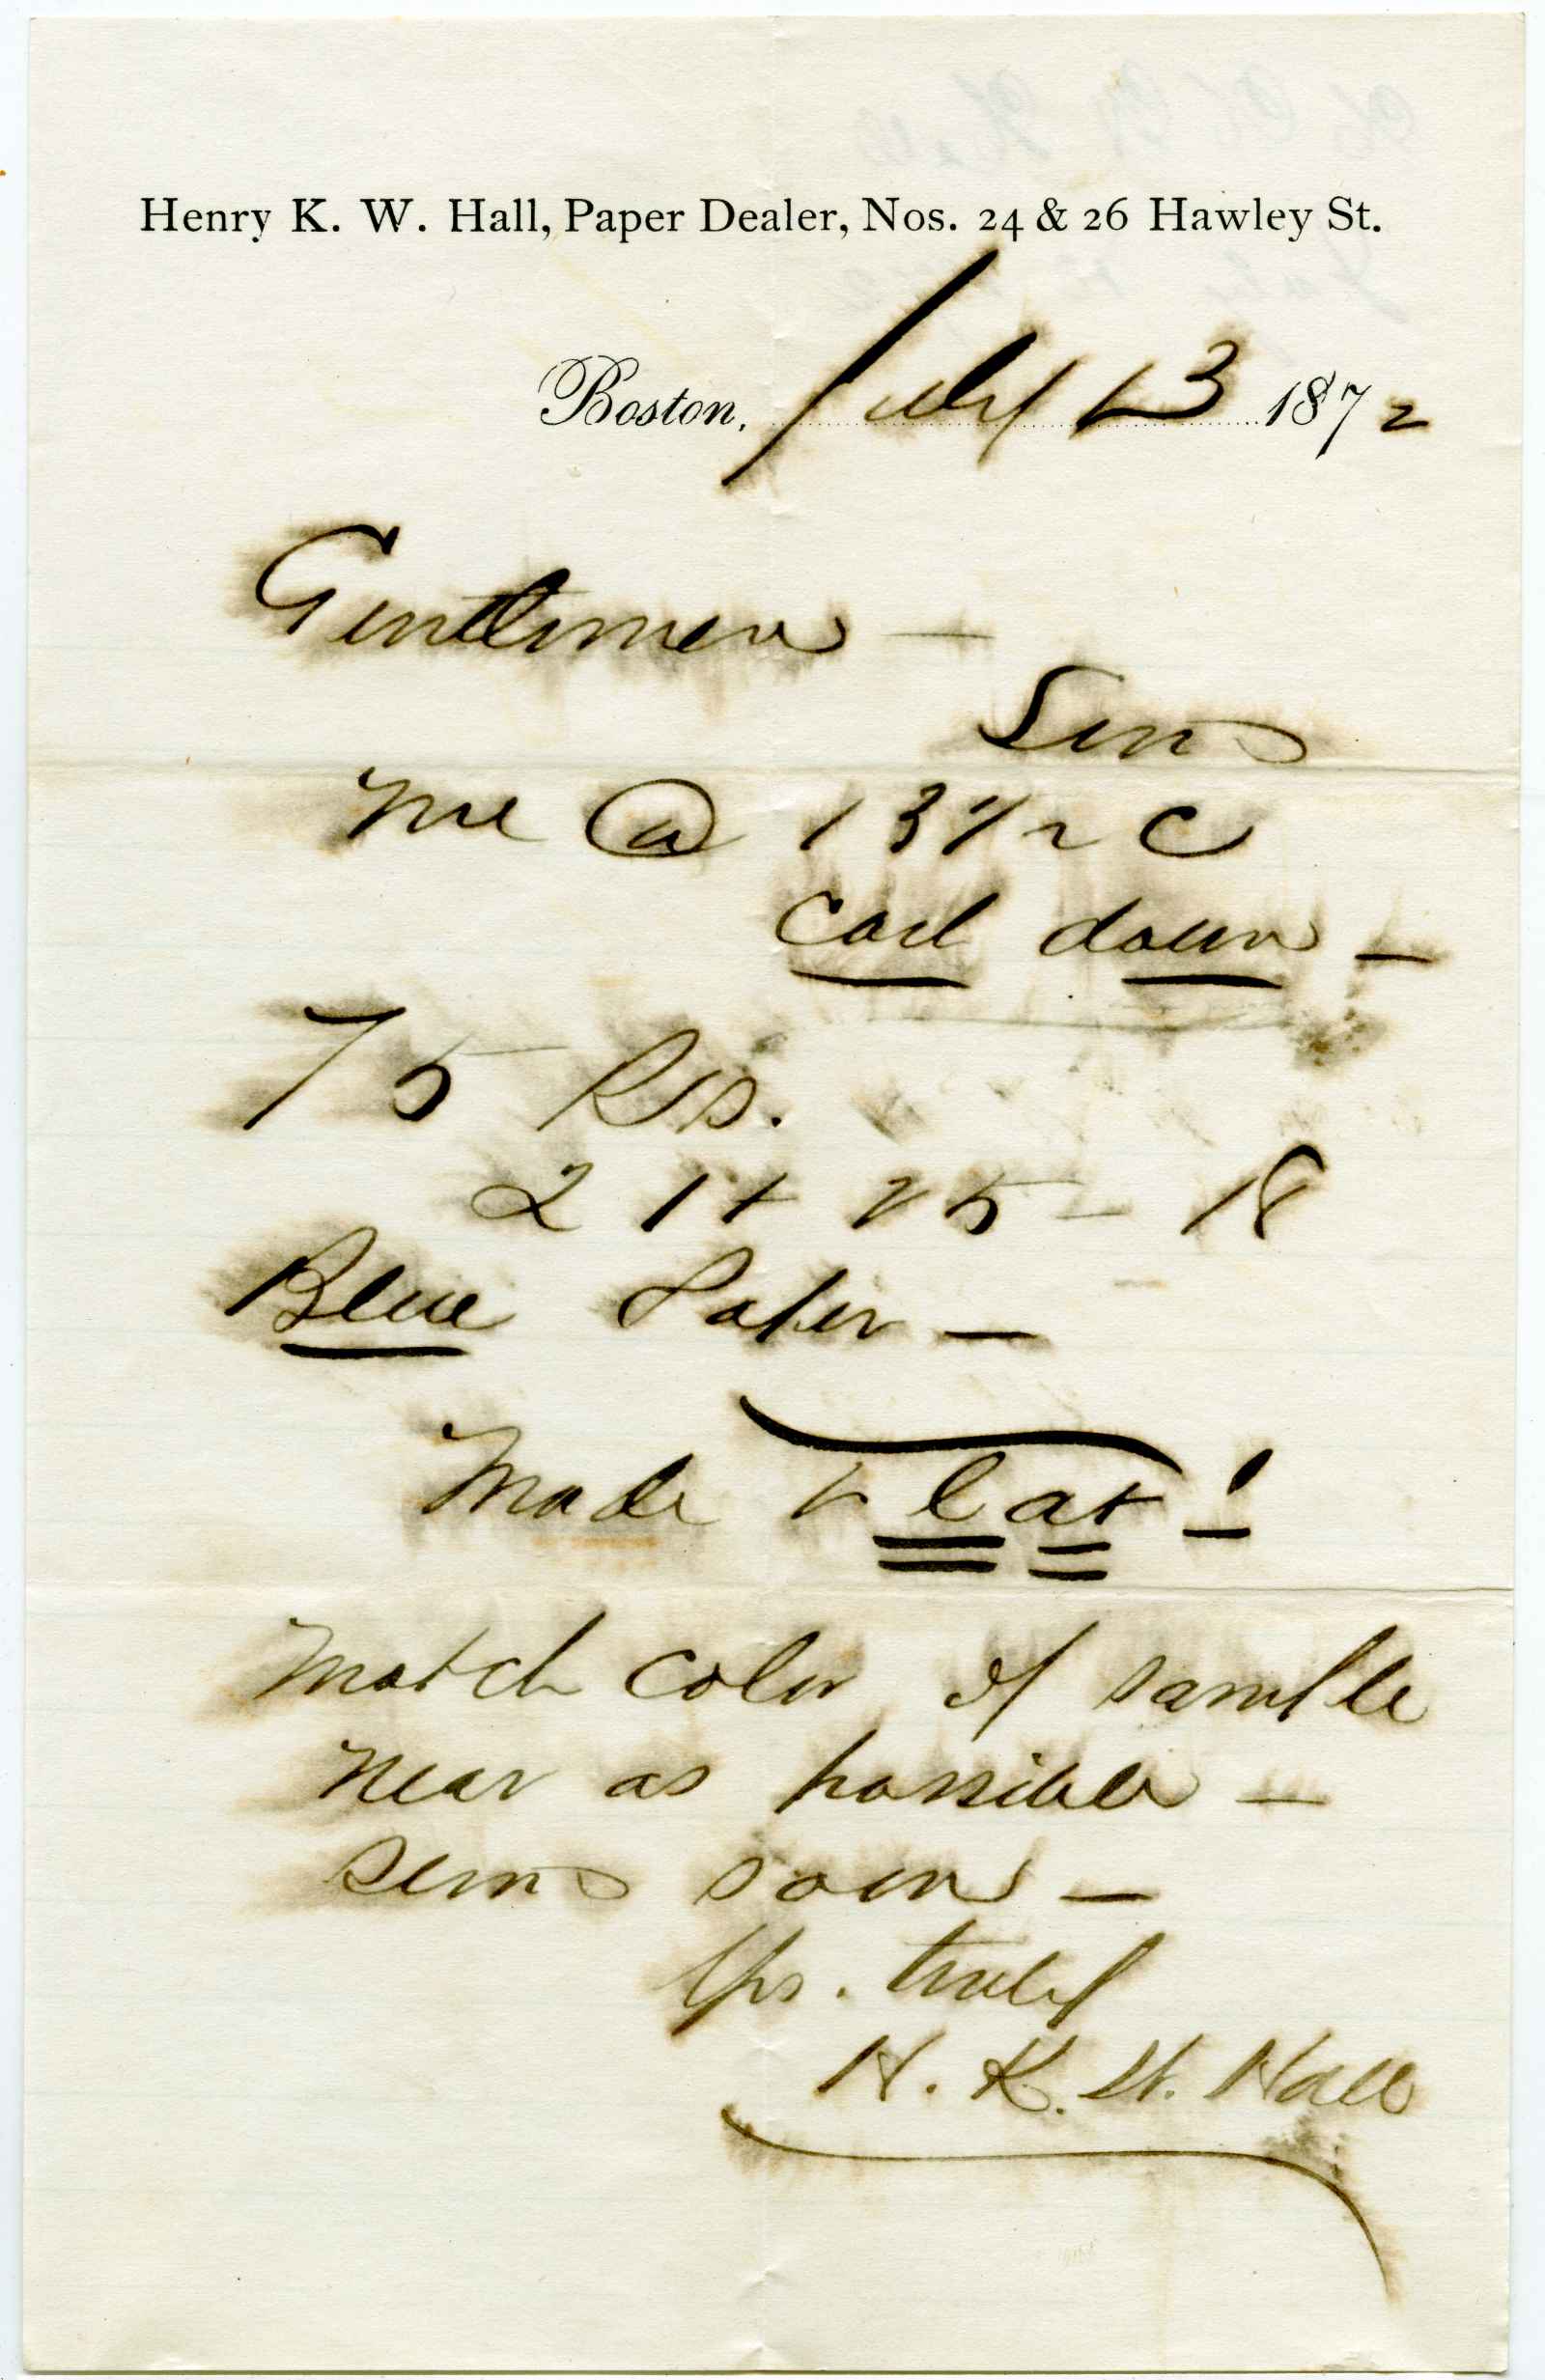 Henry K. W. Hall, Paper Dealer, Nos. 24 & 26 Hawley St.
Boston, July 13 1872
Gentlemen —
Send
me @ 13 1/2 c
down —
75 Rms.
21 x 25 — 18
Blue Paper —
Made flat!
Match color of sample
near as possible —
Send soon —
Yrs. truly
H. K. W. Hall